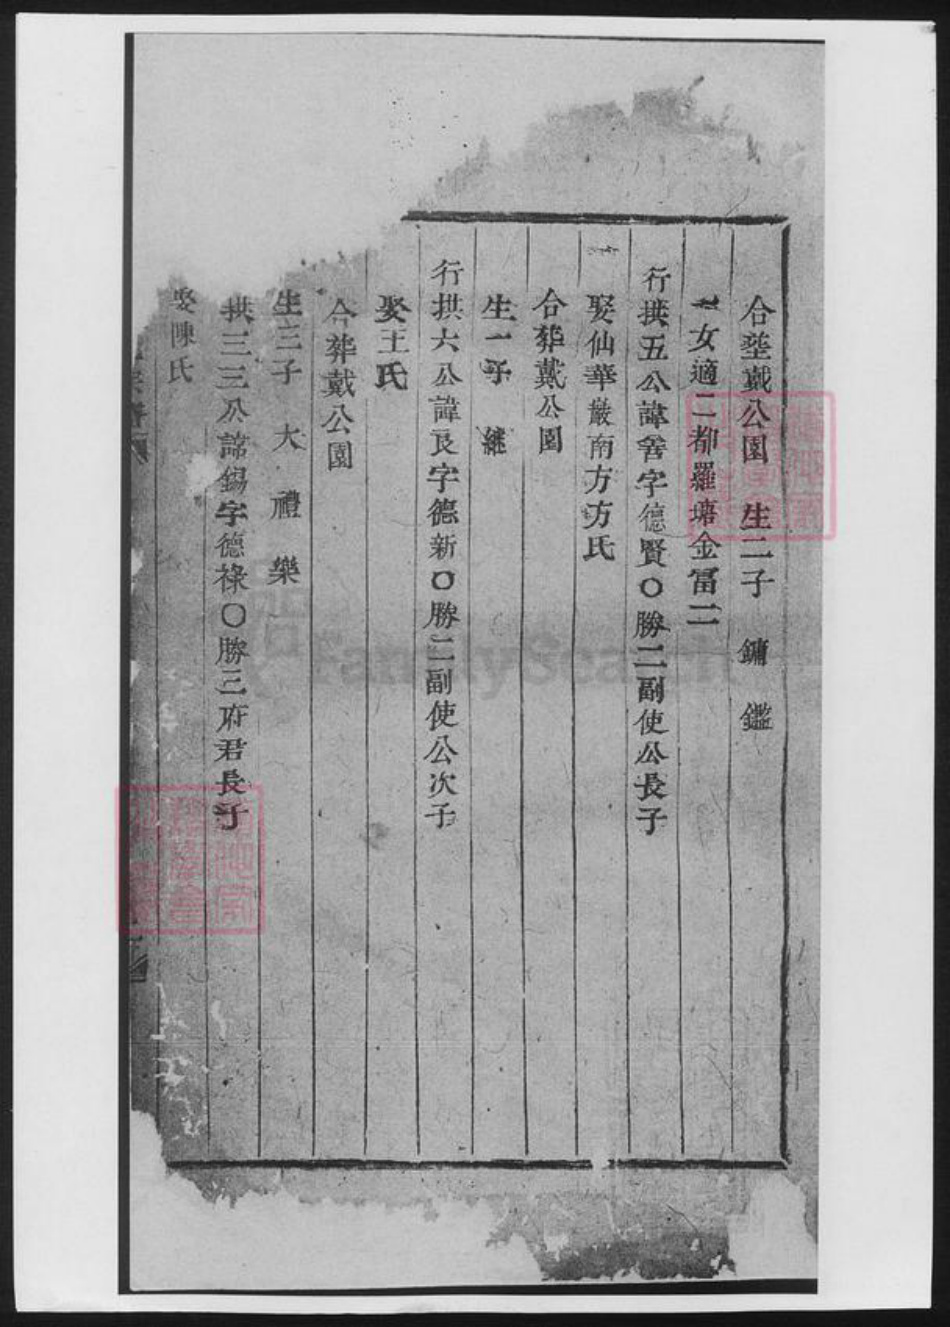 合塟戴公園 生二子 鏞 鑑
一女適二都羅塘金富二
行拱五公諱善字德賢〇勝二副使公長子
娶仙華嚴南方方氏
合葬戴公園
生一子 繼
行拱六公諱良字德新〇勝二副使公次子
娶王氏
合葬戴公園
生三子 大 禮 樂
拱三三公諱錫字德祿〇勝三府君長子
娶陳氏
FamilySearch